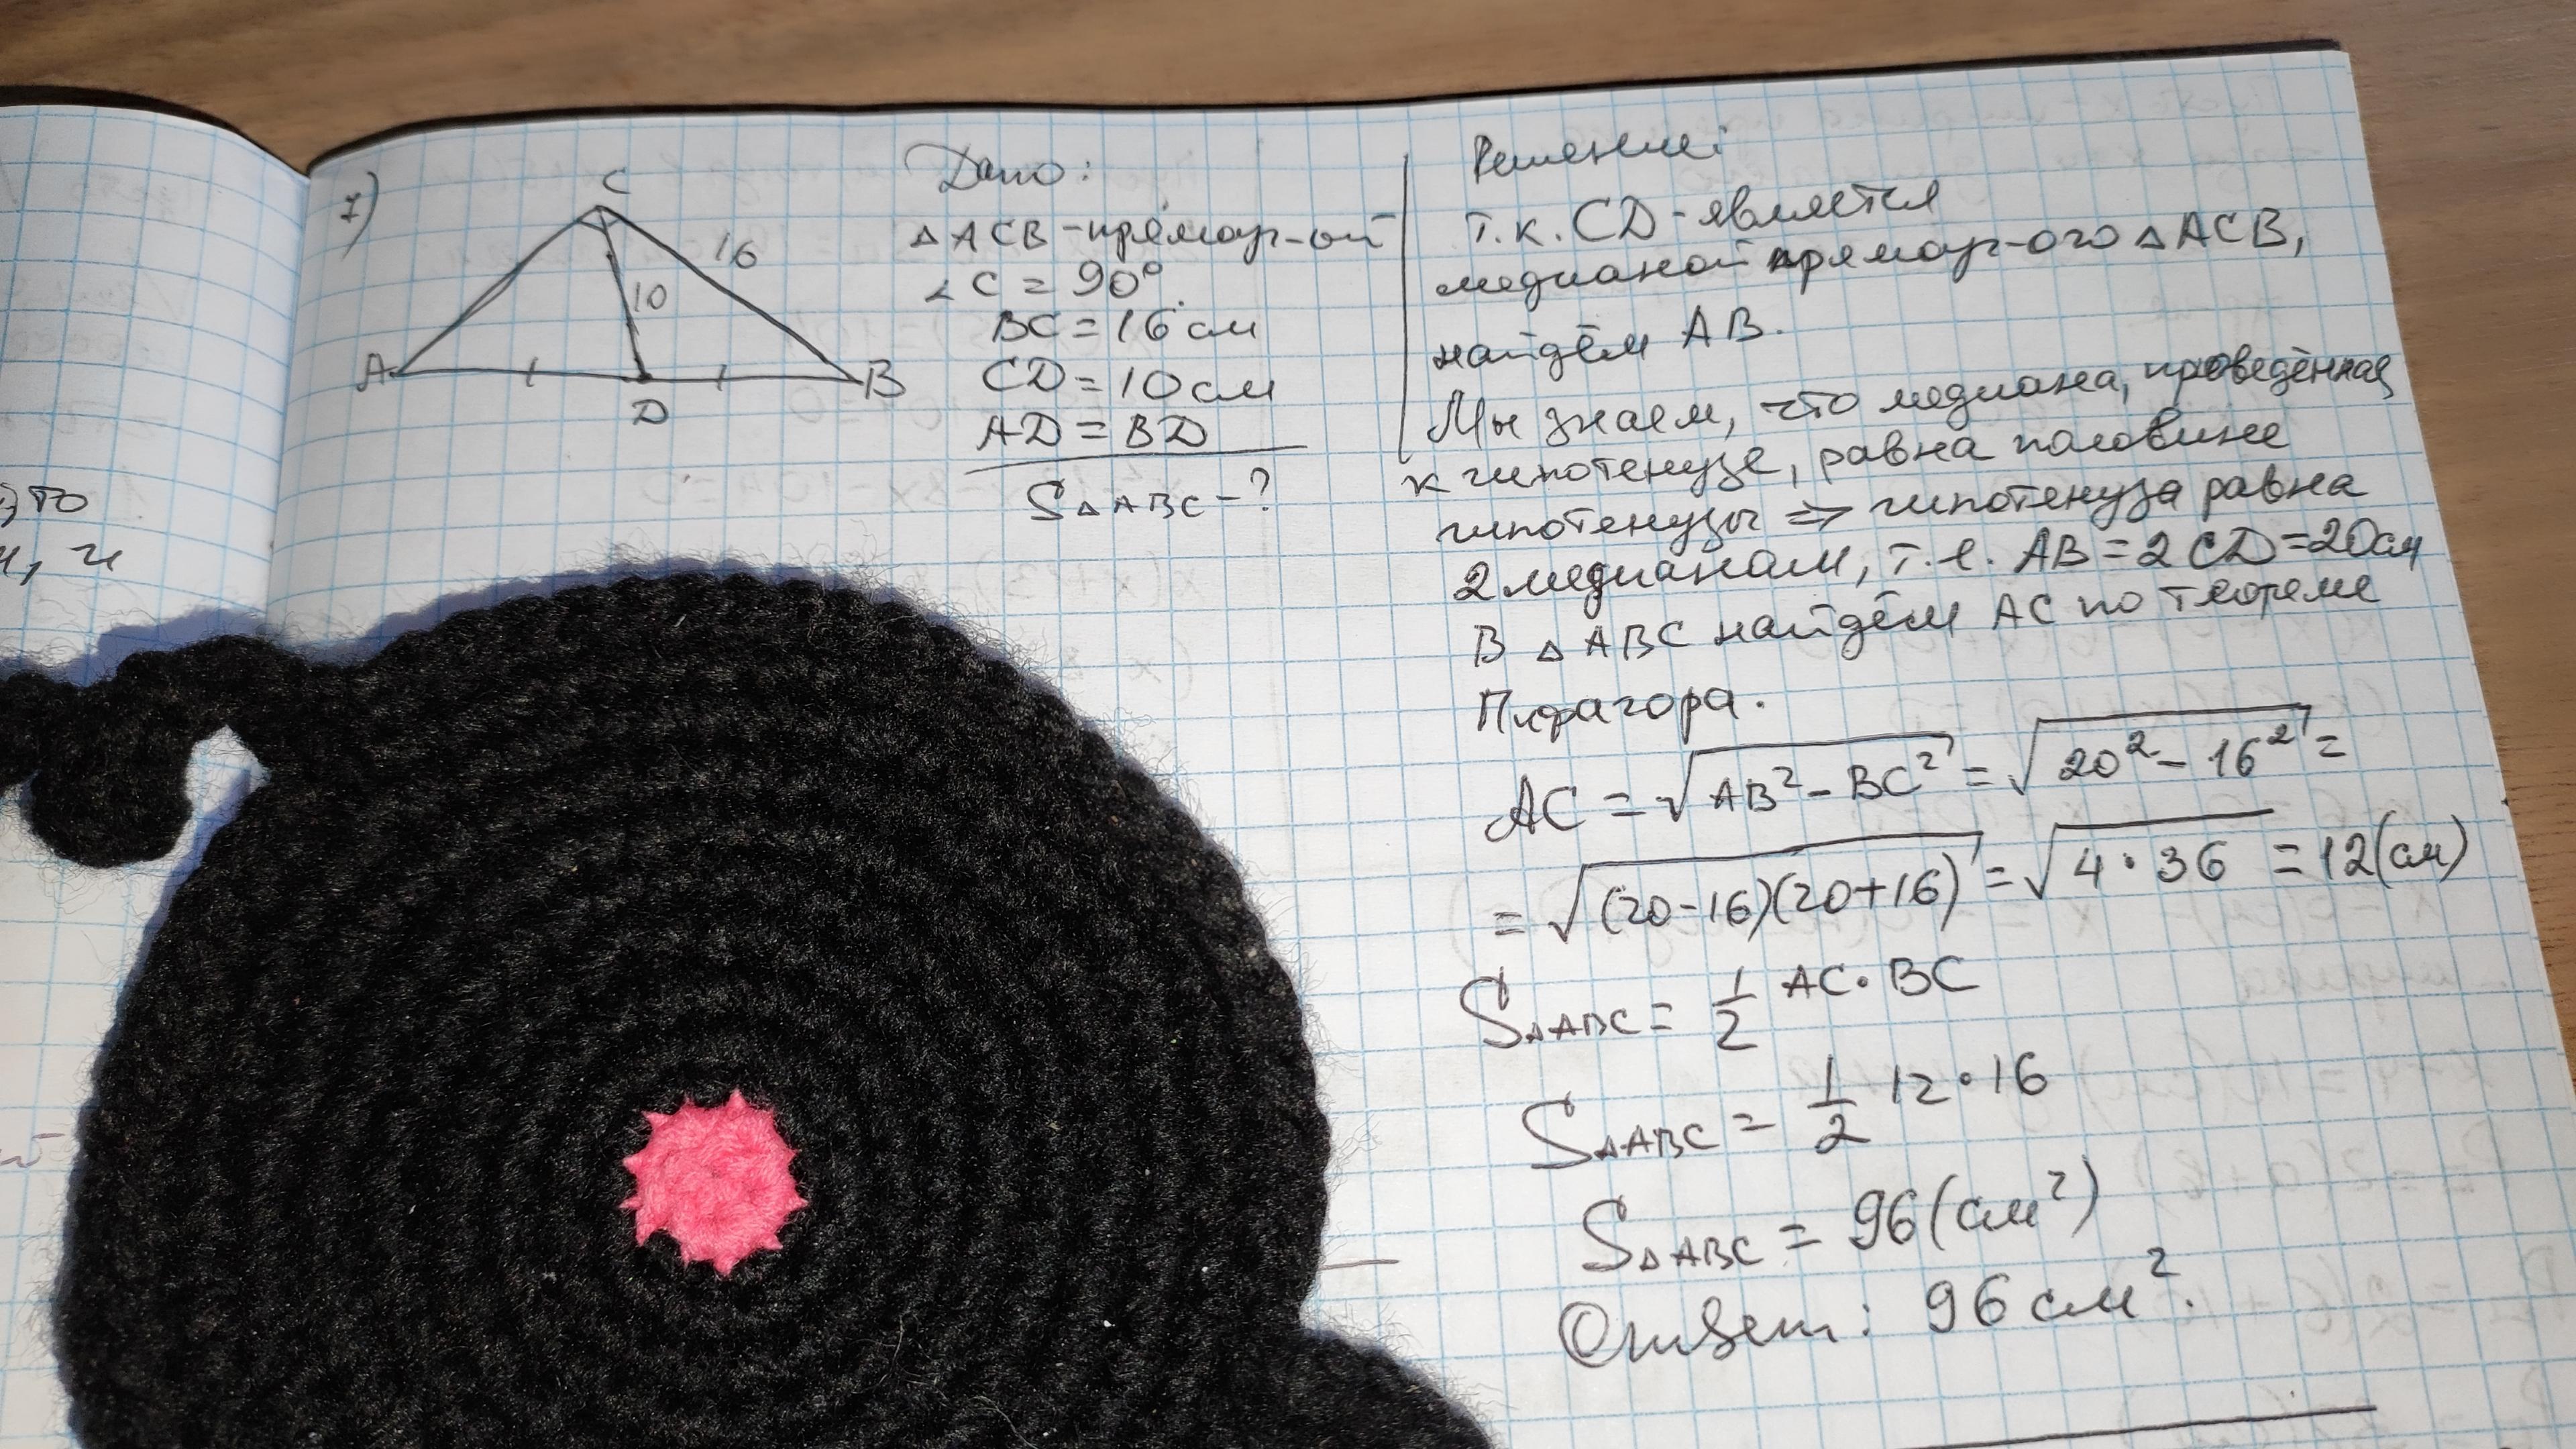 7)
C
16
10
A
B
D
Дано:
△ ACB - прямоуг-ой
∠ C = 90°.
BC = 16 см
CD = 10 см
AD = BD
S△ABC - ?
Решение:
т.к. CD - является
медианой прямоуг-ого △ ACB,
найдём AB.
Мы знаем, что медиана, проведённая
к гипотенузе, равна половине
гипотенузы ⇒ гипотенуза равна
2 медианам, т.е. AB = 2 CD = 20 см
В △ ABC найдём AC по теореме
Пифагора.
AC = √(AB² - BC²) = √(20² - 16²) =
= √((20-16)(20+16)) = √(4 · 36) = 12 (см)
S△ABC = 1/2 AC · BC
S△ABC = 1/2 12 · 16
S△ABC = 96 (см²)
Ответ: 96 см².
то
и